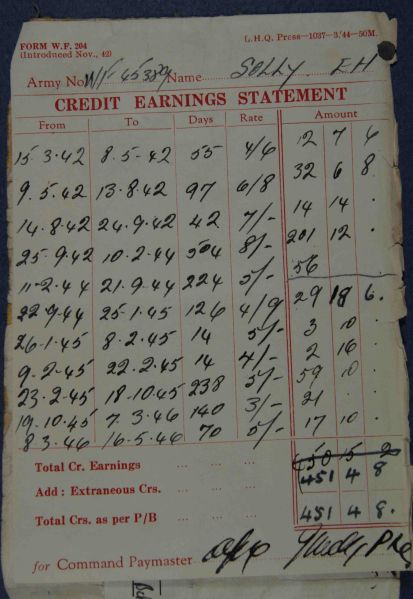 FORM W.F. 204
(Introduced Nov., 42)
L.H.Q. Press—1037—3/44—50M.
Army No. WF 45389 Name SOLLY. EH
CREDIT EARNINGS STATEMENT
From To Days Rate Amount
15.3.42 8.5.42 55 4/6 12 7 6
9.5.42 13.8.42 97 6/8 32 6 8
14.8.42 24.9.42 42 7/- 14 14 .
25.9.42 10.2.44 504 8/- 201 12 .
11.2.44 21.9.44 224 5/- 56
22.9.44 25.1.45 126 4/9 29 18 6.
26.1.45 8.2.45 14 5/- 3 10 .
9.2.45 22.2.45 14 4/- 2 16 .
23.2.45 18.10.45 238 5/- 59 10 .
19.10.45 7.3.46 140 3/- 21 .
8.3.46 16.5.46 70 5/- 17 10 .
450 15 2
Total Cr. Earnings ... ... ... 451 4 8
Add : Extraneous Crs. ... ...
Total Crs. as per P/B ... ... 451 4 8.
for Command Paymaster